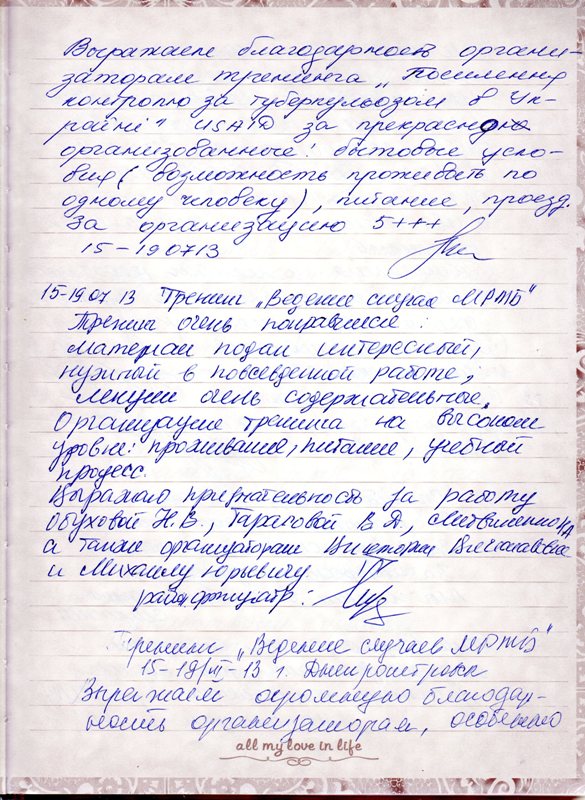 Выражаем благодарность органи-
заторам тренинга „Посилення
контролю за туберкульозом в Ук-
раїні" USAID за прекрасно
организованные: бытовые усло-
вия (возможность проживать по
одному человеку), питание, проезд.
За организацию 5+++
15-190713
15-1907 13 Тренинг „Ведение случая МРТБ"
Тренинг очень понравился:
материал подан интересный,
нужный в повседневной работе,
лекции очень содержательные.
Организация тренинга на высоком
уровне: проживание, питание, учебный
процесс.
Выражаю признательность за работу
Обуховой Н.В., Тарасовой В.Д., Литвиненко НА
а также организаторам Виктории Вячеславовне
и Михаилу Юрьевичу
райфтизиатр:
Тренинг „Ведение случаев МРТБ"
15-19/VII-13 г. Днепропетровск
Выражаем огромную благодар-
ность организаторам, особенно
all my love in life